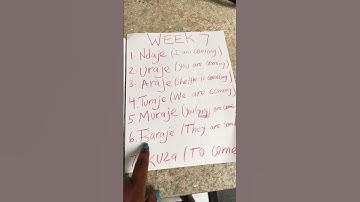 WEEK 7
1. Ndaje (I am coming)
2. Uraje (you are coming)
3. Araje (she/he is coming)
4. Turaje (We are coming)
5 Muraje (you are comi
6. Baraje (They are come
KUZA (TO come